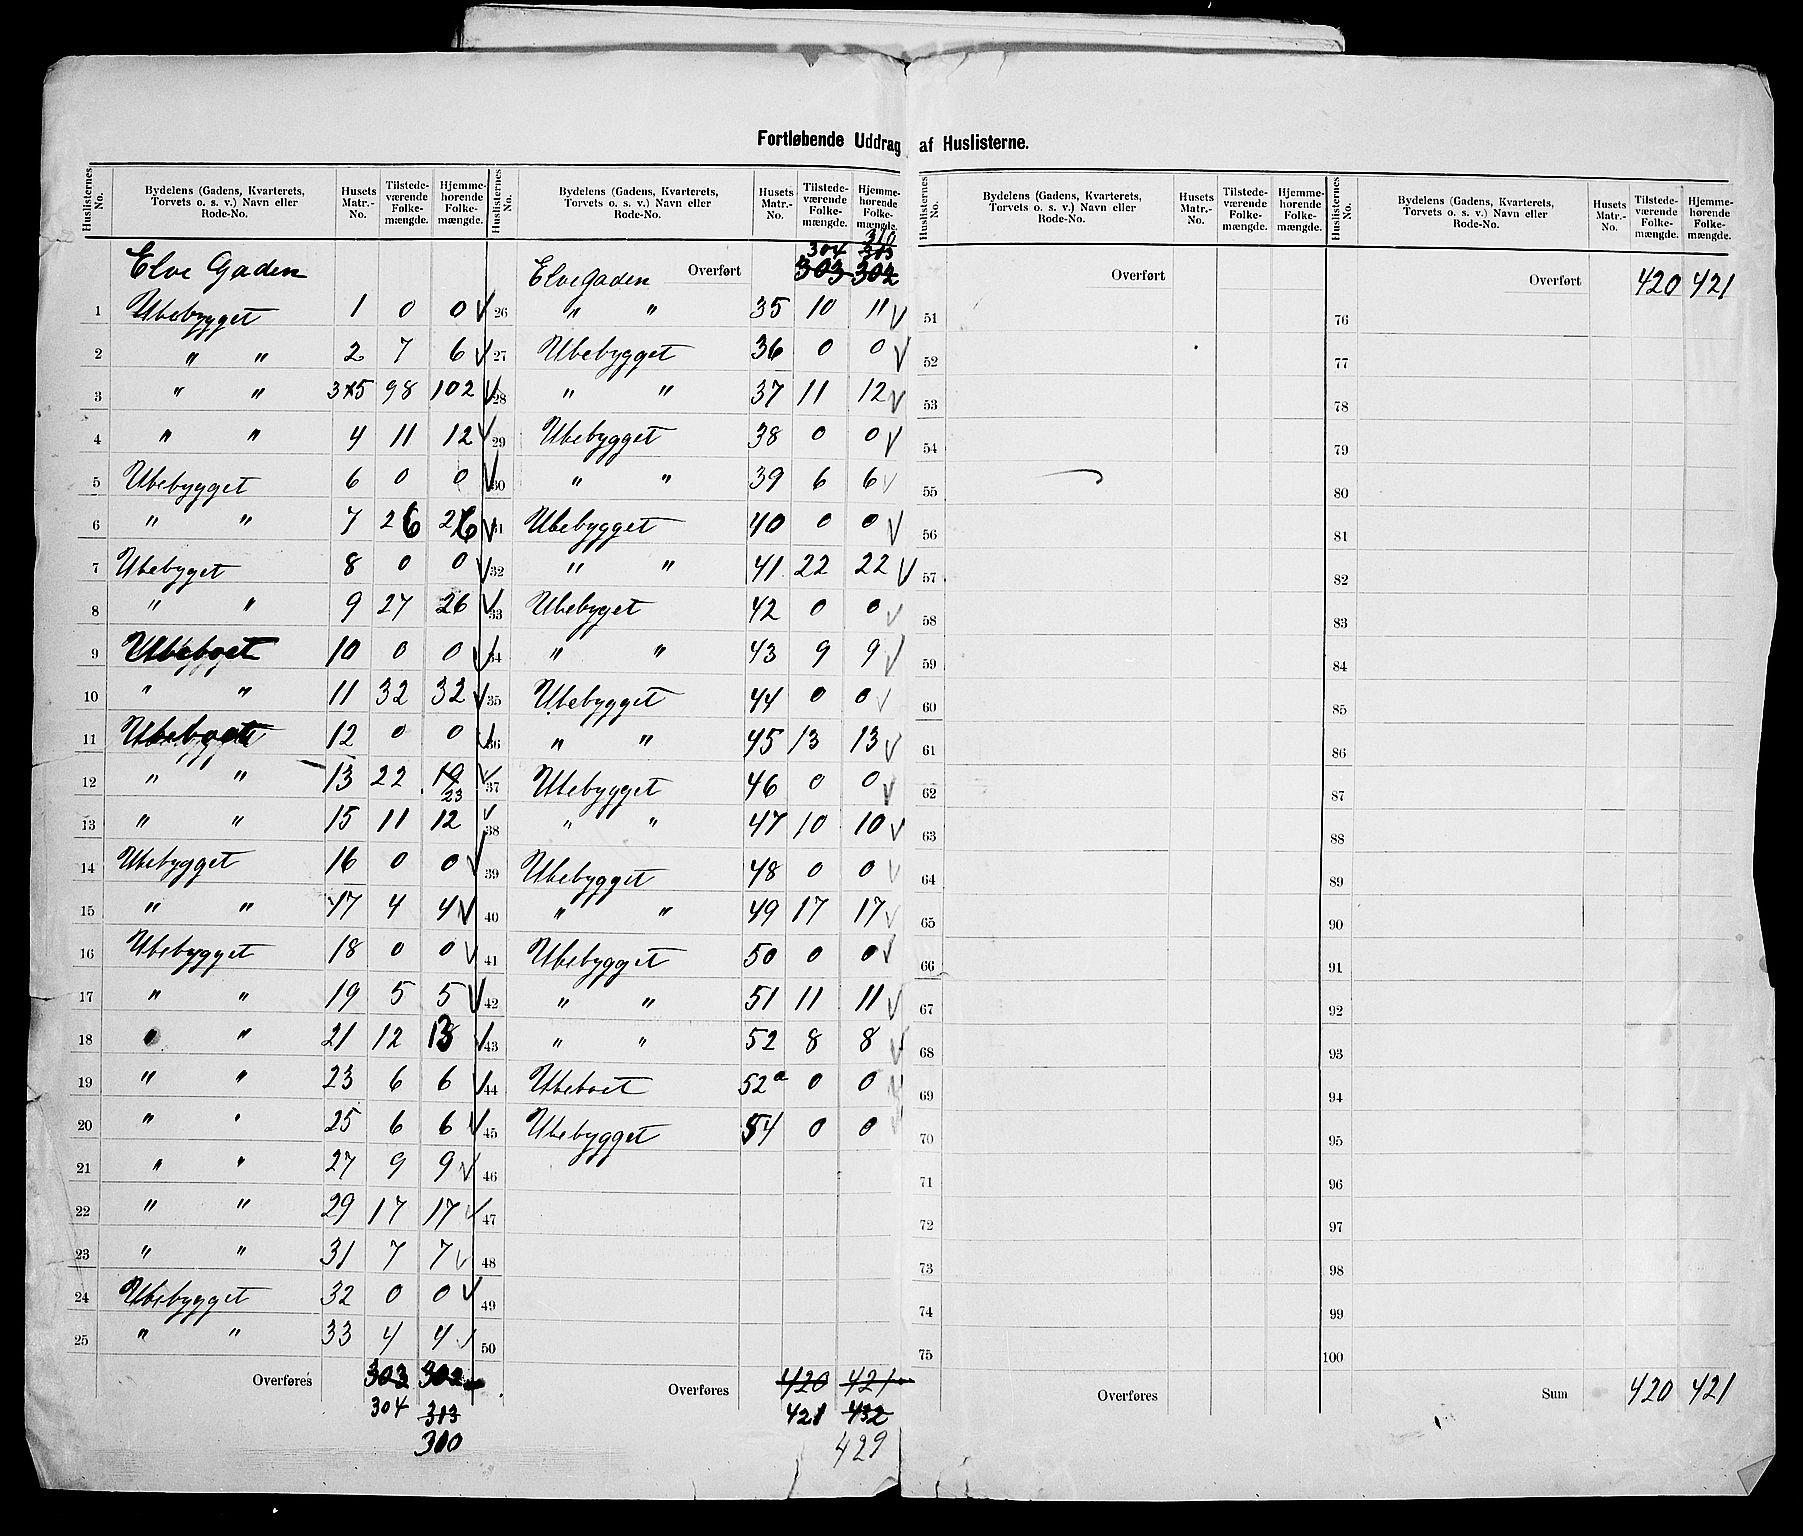 Fortløbende Uddrag af Huslisterne.
Huslisternes No. | Bydelens (Gadens, Kvarterets, Torvets o. s. v.) Navn eller Rode-No. | Husets Matr.-No. | Tilstedeværende Folkemængde. | Hjemmehørende Folkemængde.
Elve Gaden
1 Ubebygget 1 0 0 ✓
2 " " 2 7 6 ✓
3 " " 3+5 98 102 ✓
4 " " 4 11 12 ✓
5 Ubebygget 6 0 0 ✓
6 " " 7 26 26 ✓
7 Ubebyget 8 0 0 ✓
8 " " 9 27 26 ✓
9 Ubeboet 10 0 0 ✓
10 " " 11 32 32 ✓
11 Ubeboet 12 0 0 ✓
12 " " 13 22 19 ✓
23
13 " " 15 11 12 ✓
14 Ubebygget 16 0 0 ✓
15 " " 17 4 4 ✓
16 Ubebygget 18 0 0 ✓
17 " " 19 5 5 ✓
18 " " 21 12 13 ✓
19 " " 23 6 6 ✓
20 " " 25 6 6 ✓
21 " " 27 9 9 ✓
22 " " 29 17 17 ✓
23 " " 31 7 7 ✓
24 Ubebygget 32 0 0 ✓
25 " " 33 4 4 ✓
Overføres 303 302
304 313
310
Huslisternes No. | Bydelens (Gadens, Kvarterets, Torvets o. s. v.) Navn eller Rode-No. | Husets Matr.-No. | Tilstedeværende Folkemængde. | Hjemmehørende Folkemængde.
310
304 313
Elvegaden Overført 303 302
26 " " 35 10 11 ✓
27 Ubebygget 36 0 0 ✓
28 " " 37 11 12 ✓
29 Ubebygget 38 0 0 ✓
30 " " 39 6 6 ✓
31 Ubebygget 40 0 0 ✓
32 " " 41 22 22 ✓
33 Ubebyget 42 0 0 ✓
34 " " 43 9 9 ✓
35 Ubebygget 44 0 0 ✓
36 " " 45 13 13 ✓
37 Ubebygget 46 0 0 ✓
38 " " 47 10 10 ✓
39 Ubebygget 48 0 0 ✓
40 " " 49 17 17 ✓
41 Ubebygget 50 0 0 ✓
42 " " 51 11 11 ✓
43 " " 52 8 8 ✓
44 Ubeboet 52a 0 0 ✓
45 Ubebygget 54 0 0 ✓
46
47
48
49
50
Overføres 420 421
421 432
429
Huslisternes No. | Bydelens (Gadens, Kvarterets, Torvets o. s. v.) Navn eller Rode-No. | Husets Matr.-No. | Tilstedeværende Folkemængde. | Hjemmehørende Folkemængde.
Overført
51
52
53
54
55
56
57
58
59
60
61
62
63
64
65
66
67
68
69
70
71
72
73
74
75
Overføres
Huslisternes No. | Bydelens (Gadens, Kvarterets, Torvets o. s. v.) Navn eller Rode-No. | Husets Matr.-No. | Tilstedeværende Folkemængde. | Hjemmehørende Folkemængde.
Overført 420 421
76
77
78
79
80
81
82
83
84
85
86
87
88
89
90
91
92
93
94
95
96
97
98
99
100
Sum 420 421